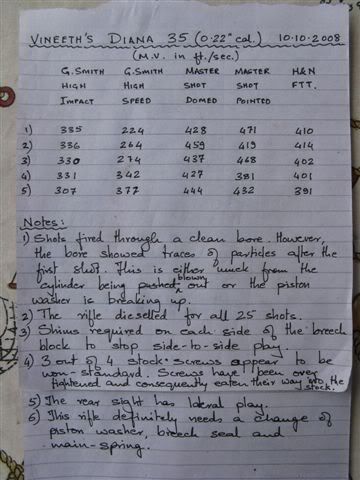 VINEETH'S DIANA 35 (0.22" cal.) 10.10.2008
(M.V. in ft./sec.)
G.SMITH G.SMITH MASTER MASTER H&N
HIGH HIGH SHOT SHOT FTT.
IMPACT SPEED DOMED POINTED
1) 335 224 428 471 410
2) 336 264 459 419 414
3) 330 274 437 468 402
4) 331 342 427 381 401
5) 307 377 444 432 391
Notes:
1) Shots fired through a clean bore. However,
the bore showed traces of particles after the
first shot. This is either muck from the
cylinder being pushed, blown out or the piston
washer is breaking up.
2) The rifle dieselled for all 25 shots.
3) Shims required on each side of the breech
block to stop side-to-side play.
4) 3 out of 4 stock-screws appear to be
non-standard. Screws have been over
tightened and consequently eaten their way into the
stock.
5) The rear sight has lateral play.
6) This rifle definitely needs a change of
piston washer, breech seal and
main-spring.